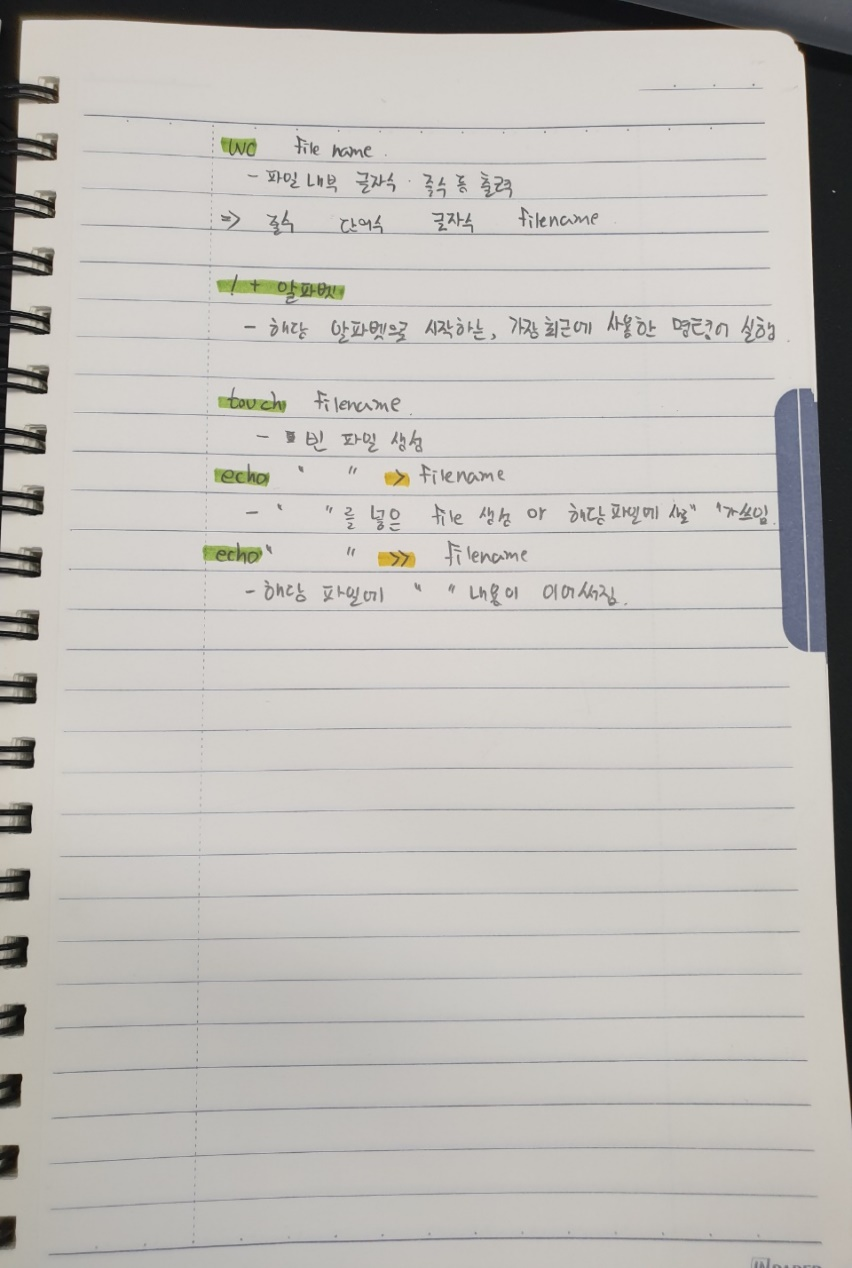 wc file name.
- 파일 내부 글자수 · 줄수 등 출력
=> 줄수 단어수 글자수 filename
! + 알파벳
- 해당 알파벳으로 시작하는, 가장 최근에 사용한 명령어 실행
touch filename.
- 빈 파일 생성
echo " " > filename
- " "를 넣은 file 생성 or 해당파일에 새로" "가 쓰임.
echo" " >> filename
- 해당 파일에 " " 내용이 이어써짐.